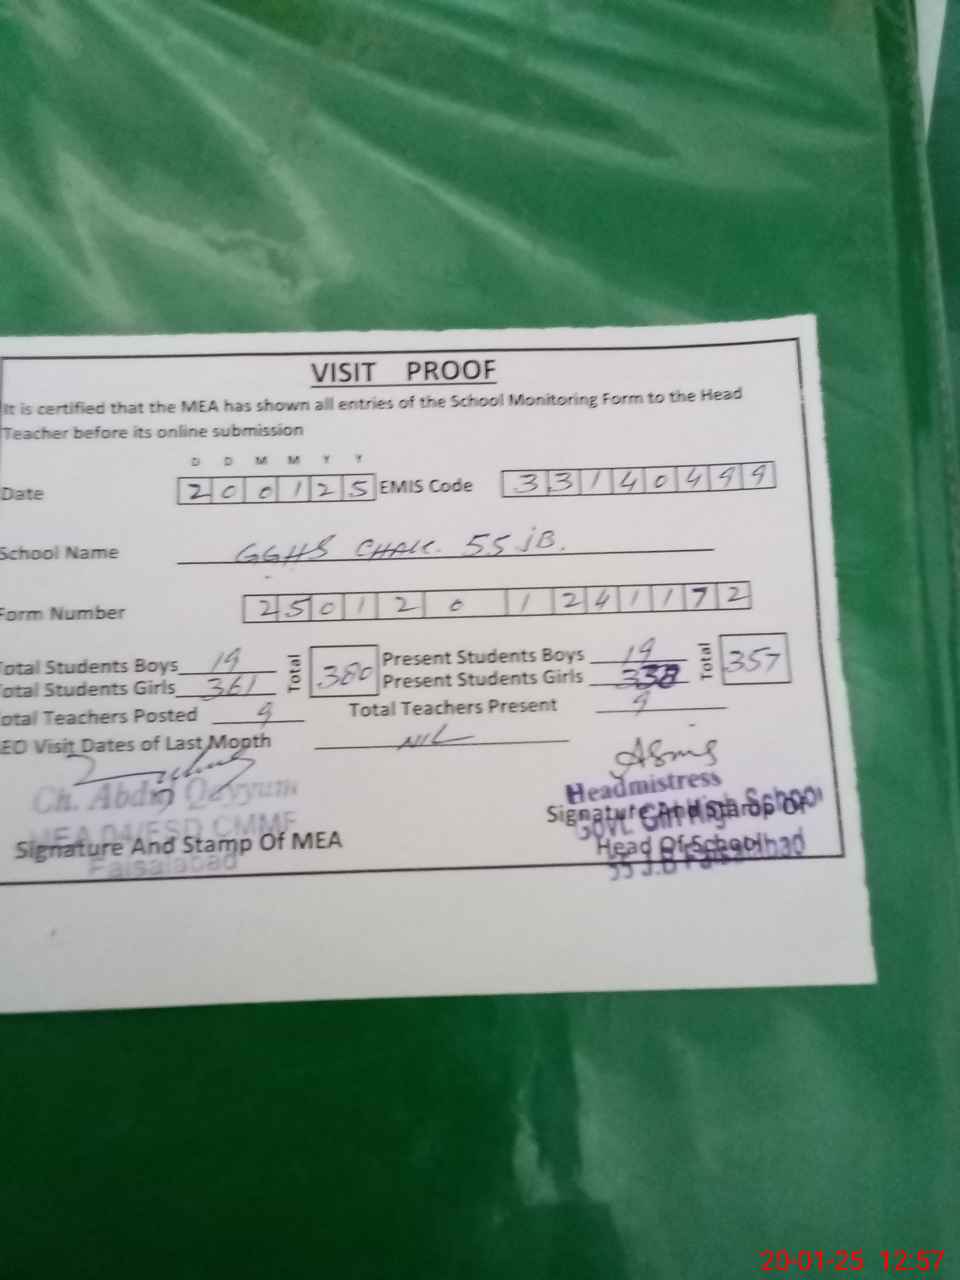 VISIT PROOF
It is certified that the MEA has shown all entries of the School Monitoring Form to the Head
Teacher before its online submission
D D M M Y Y
Date 200125 EMIS Code 33140499
School Name GGHS CHAK. 55 JB.
Form Number 2501201241172
Total Students Boys 19 Total 380 Present Students Boys 19 Total 357
Total Students Girls 361 Present Students Girls 338
Total Teachers Posted 9 Total Teachers Present 9
EO Visit Dates of Last Month NIL
Ch. Abdul Qayyum
MEA 04/FSD CMMF
Faisalabad
Signature And Stamp Of MEA
Headmistress
Govt. Girl High School
55 J.B Faisalabad
Signature And Stamp Of
Head Of School
20-01-25 12:57